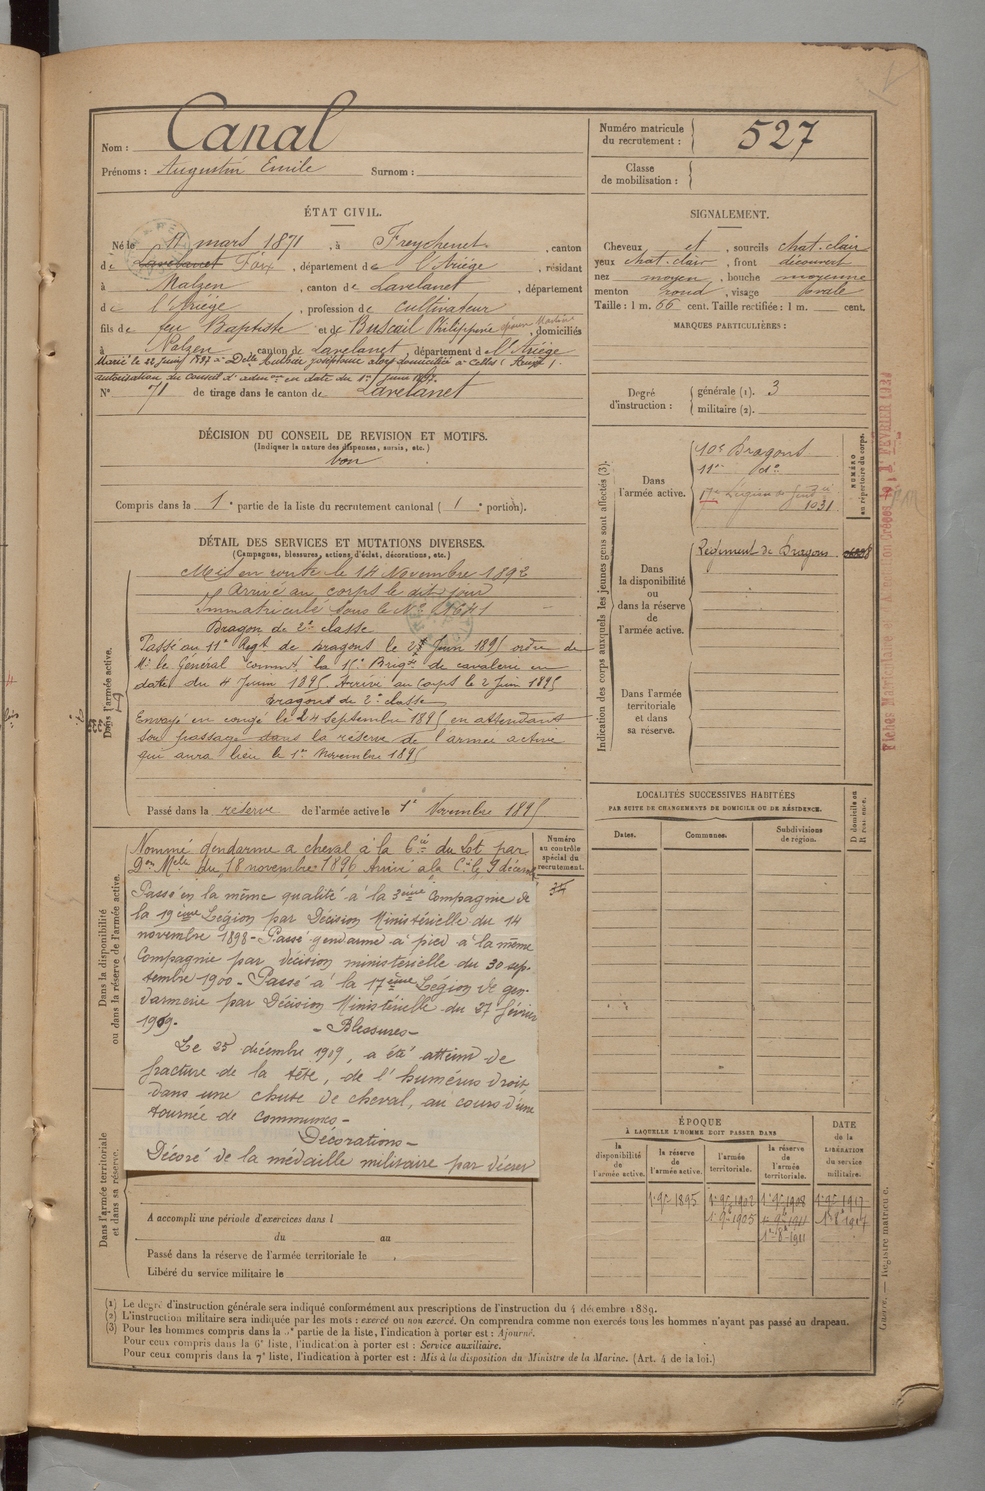 Nom : Canal
Prénoms : Augustin Emile Surnom :
Numéro matricule
du recrutement : 527
Classe
de mobilisation :
ÉTAT CIVIL.
Né le 11 mars 1871, à Freychenet, canton
de Lavelanet Foix, département de l'Ariège, résidant
à Nalzen, canton de Lavelanet, département
de l'Ariège, profession de cultivateur
fils de feu Baptiste et de Buscail Philippine, domiciliés
à Nalzen, canton de Lavelanet, département de l'Ariège
Marié le 22 Juin 1897 à Delle Joséphine alors domiciliée à Celles
autorisation du Conseil d'adon en date du 1er Juin 1897.
N° 71 de tirage dans le canton de Lavelanet
SIGNALEMENT.
Cheveux et, sourcils chat. clair
yeux chat. clair, front découvert
nez moyen, bouche moyenne
menton rond, visage ovale
Taille : 1 m. 66 cent. Taille rectifiée : 1 m. cent.
MARQUES PARTICULIÈRES :
Degré
d'instruction :
générale (1). 3
militaire (2).
DÉCISION DU CONSEIL DE REVISION ET MOTIFS.
(Indiquer la nature des dispenses, sursis, etc.)
bon
Compris dans la 1e partie de la liste du recrutement cantonal (1e portion).
DÉTAIL DES SERVICES ET MUTATIONS DIVERSES.
(Campagnes, blessures, actions d'éclat, décorations, etc.)
Dans l'armée active.
Mis en route le 14 Novembre 1892
Arrivé au corps le dit jour
Immatriculé sous le N°
Dragon de 2e classe
Passé au 11e Regt de Dragons le Juin 1895 ordre de
Mr le Général Commt la 15e Brigde de cavalerie en
date du 4 Juin 1895. Arrivé au Corps le 2 Juin 1895
Dragon de 2e classe
Envoyé en congé le 24 septembre 1895 en attendant
son passage dans la réserve de l'armée active
qui aura lieu le 1er Novembre 1895
Passé dans la réserve de l'armée active le 1er Novembre 1895
Dans la disponibilité
ou dans la réserve de l'armée active.
Nommé gendarme à cheval à la Cie du Lot par
Don Melle du 18 novembre 1896 Arrivé à la Cie le 9 décembre
Numéro
au contrôle
spécial du
recrutement.
Passé en la même qualité à la 3ème Compagnie de
la 19ème Légion par Décision Ministérielle du 14
novembre 1898 - Passé gendarme à pied à la même
Compagnie par décision ministérielle du 30 sep-
tembre 1900 - Passé à la 17ème Légion de gen-
darmerie par Décision Ministérielle du 27 février
1909.
- Blessures -
Le 25 décembre 1909, a été atteint de
fracture de la tête, de l'humérus droit
dans une chute de cheval, au cours d'une
tournée de communes -
Décorations -
Décoré de la médaille militaire par décret
Dans l'armée territoriale
et dans sa réserve.
A accompli une période d'exercices dans l
du au
Passé dans la réserve de l'armée territoriale le
Libéré du service militaire le
Indication des corps auxquels les jeunes gens sont affectés (3).
Dans
l'armée active.
10e Dragons
11e do
17e Légion de Gendie
1031
NUMÉRO
au répertoire du corps.
Dans
la disponibilité
ou dans la réserve
de
l'armée active.
Régiment de Dragons
Dans l'armée
territoriale
et dans
sa réserve.
LOCALITÉS SUCCESSIVES HABITÉES
PAR SUITE DE CHANGEMENTS DE DOMICILE OU DE RÉSIDENCE.
Dates. Communes. Subdivisions
de région.
D domicile ou
R résidence.
ÉPOQUE
À LAQUELLE L'HOMME DOIT PASSER DANS
la
disponibilité
de
l'armée active.
la réserve
de
l'armée active.
l'armée
territoriale.
la réserve
de
l'armée
territoriale.
DATE
de la
LIBÉRATION
du service
militaire.
1er 9bre 1895 1er 9bre 1902 1er 9bre 1908 1er 9bre 1917
1er 9bre 1905 1er 9bre 1911 1er 8bre 1917
1er 8bre 1911
(1) Le degré d'instruction générale sera indiqué conformément aux prescriptions de l'instruction du 4 décembre 1889.
(2) L'instruction militaire sera indiquée par les mots : exercé ou non exercé. On comprendra comme non exercés tous les hommes n'ayant pas passé au drapeau.
(3) Pour les hommes compris dans la 5e partie de la liste, l'indication à porter est : Ajourné.
Pour ceux compris dans la 6e liste, l'indication à porter est : Service auxiliaire.
Pour ceux compris dans la 7e liste, l'indication à porter est : Mis à la disposition du Ministre de la Marine. (Art. 4 de la loi.)
Guerre. — Registre matricule.